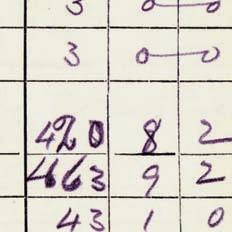 3 0—0
3 0—0
420 8 2
463 9 2
43 1 0